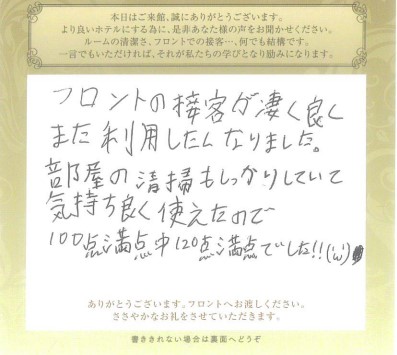 本日はご来館、誠にありがとうございます。
より良いホテルにする為に、是非あなた様の声をお聞かせください。
ルームの清潔さ、フロントでの接客…、何でも結構です。
一言でもいただければ、それが私たちの学びとなり励みになります。
フロントの接客が凄く良く
また利用したくなりました。
部屋の清掃もしっかりしていて
気持ち良く使えたので
100点満点中120点満点でした!!('ω')
ありがとうございます。フロントへお渡しください。
ささやかなお礼をさせていただきます。
書ききれない場合は裏面へどうぞ